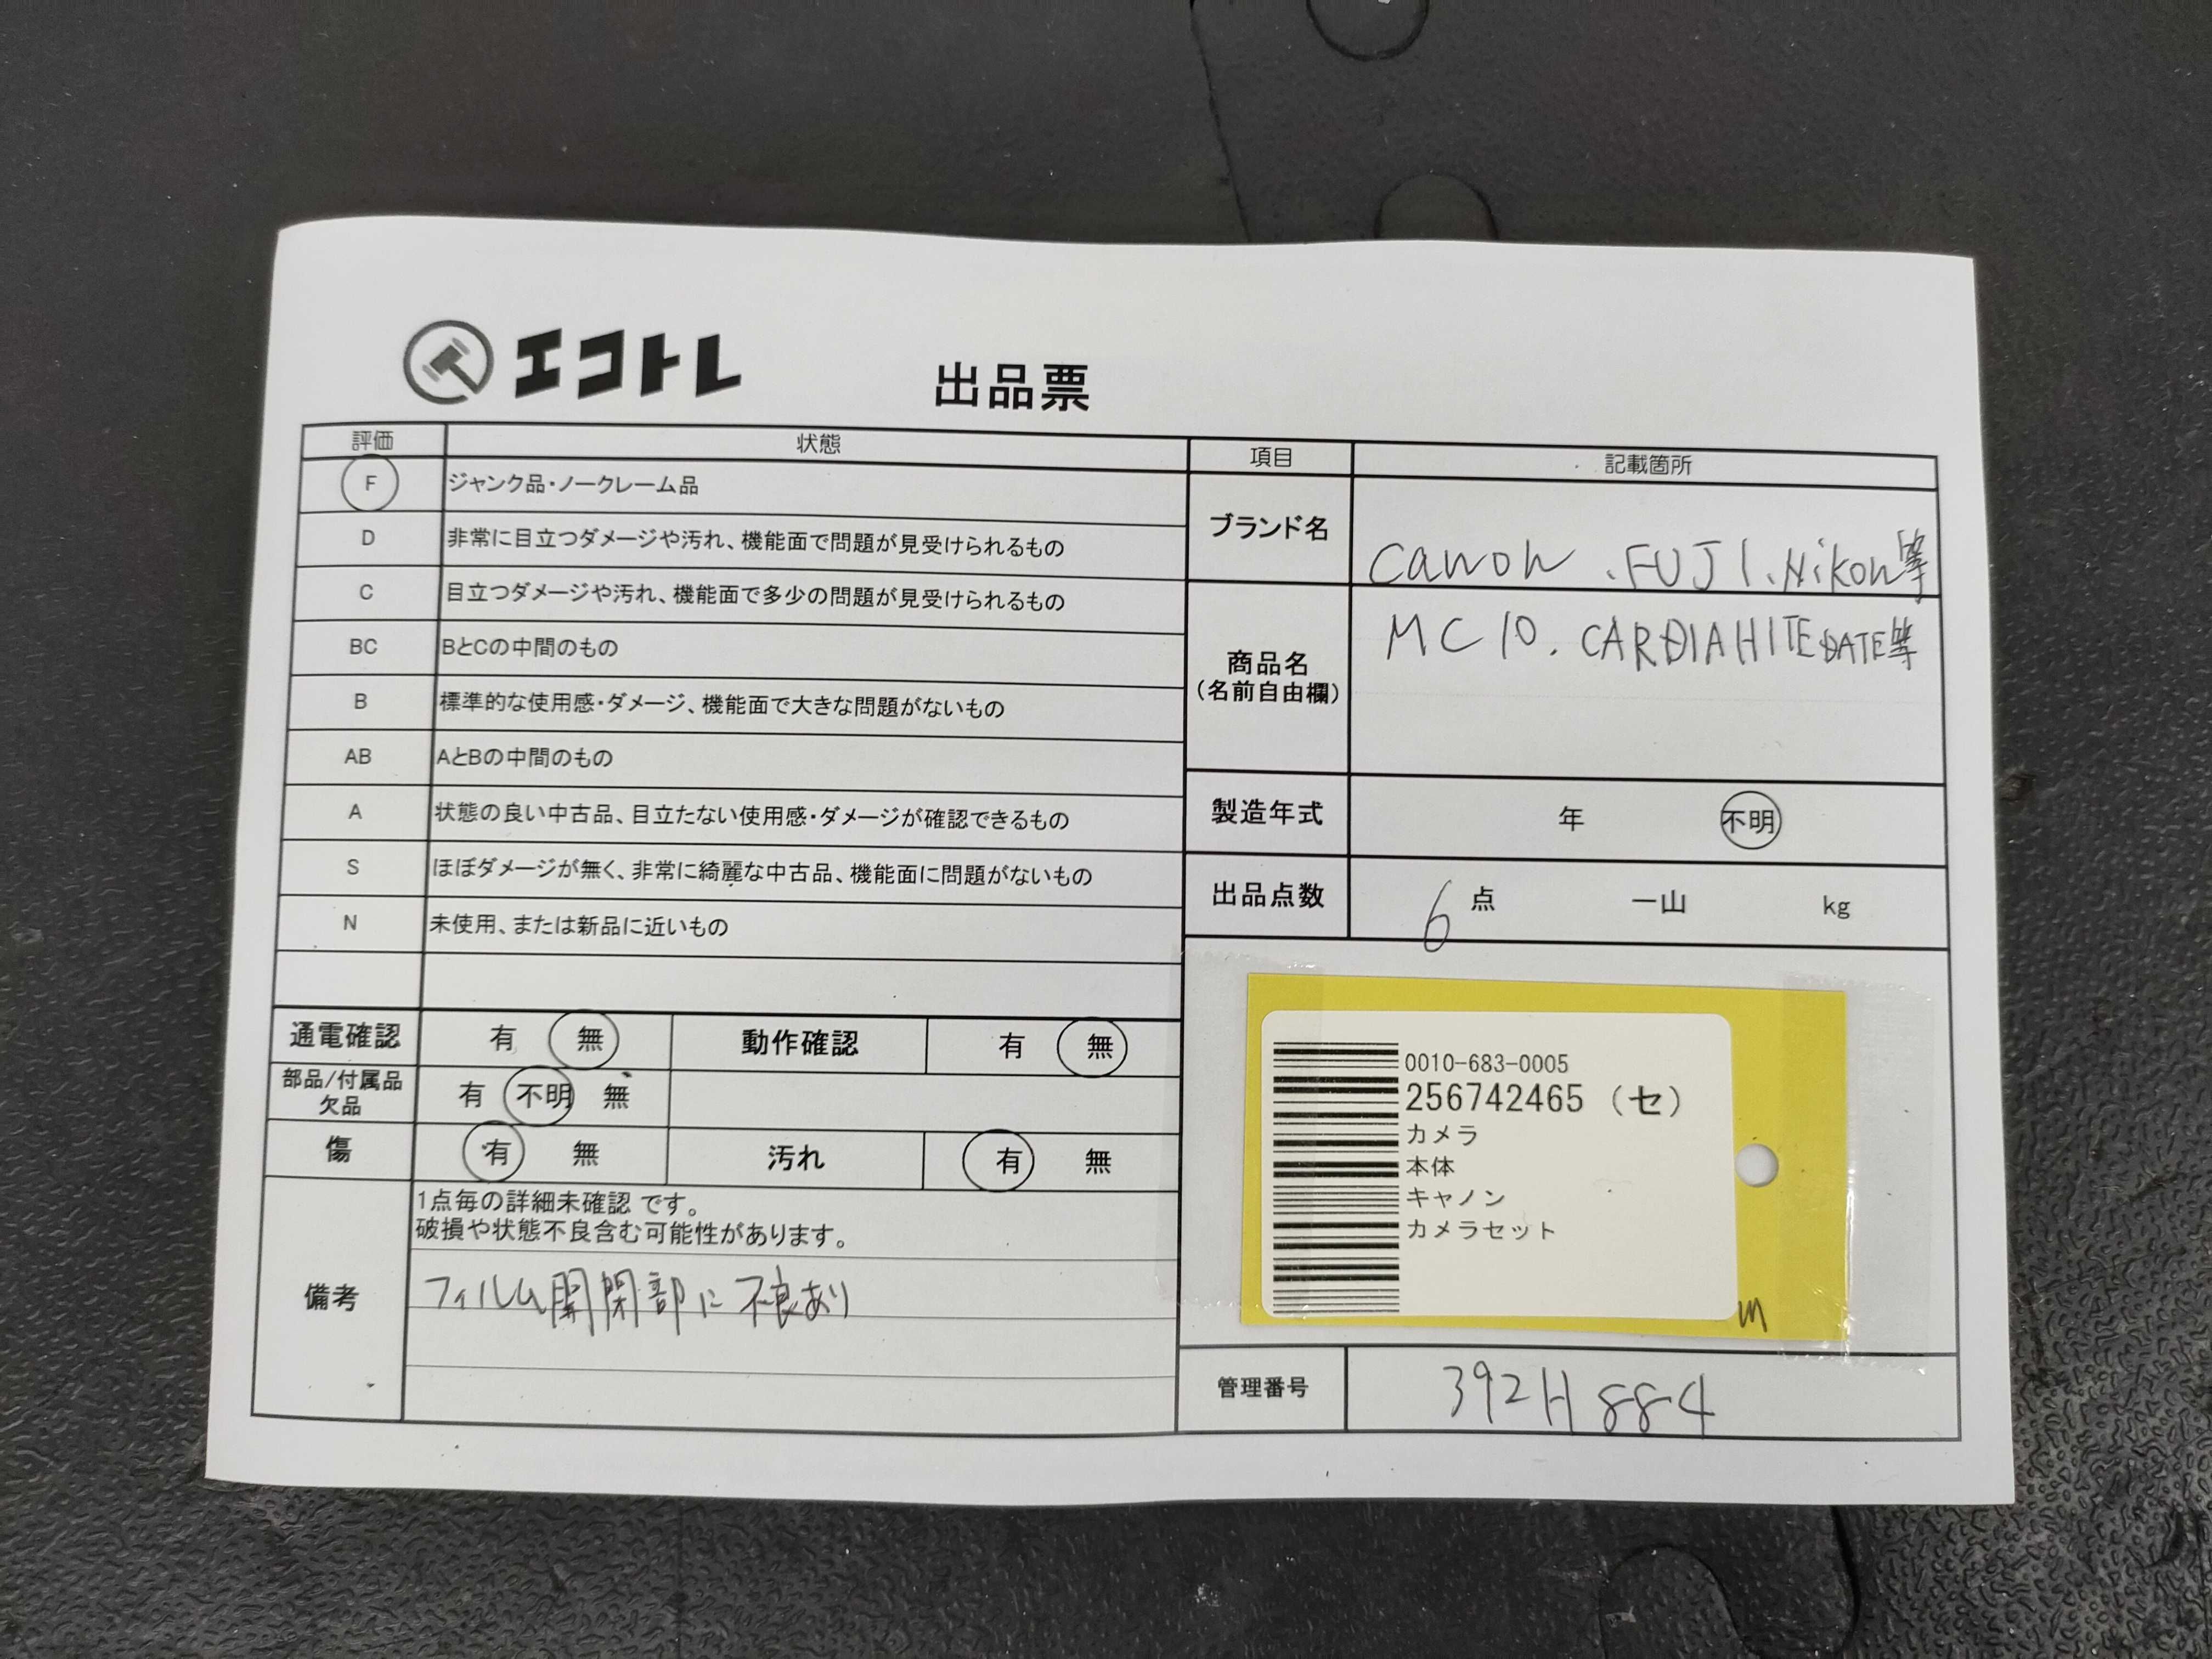 エコトレ
出品票
評価 状態
F ジャンク品・ノークレーム品
D 非常に目立つダメージや汚れ、機能面で問題が見受けられるもの
C 目立つダメージや汚れ、機能面で多少の問題が見受けられるもの
BC BとCの中間のもの
B 標準的な使用感・ダメージ、機能面で大きな問題がないもの
AB AとBの中間のもの
A 状態の良い中古品、目立たない使用感・ダメージが確認できるもの
S ほぼダメージが無く、非常に綺麗な中古品、機能面に問題がないもの
N 未使用、または新品に近いもの
通電確認 有 無 動作確認 有 無
部品/付属品 欠品 有 不明 無
傷 有 無 汚れ 有 無
備考
1点毎の詳細未確認 です。
破損や状態不良含む可能性があります。
フィルム開閉部に不良あり
項目 記載箇所
ブランド名 Canon、FUJI、Nikon等
商品名
(名前自由欄)
MC10、CARDIAHITE DATE等
製造年式 年 不明
出品点数 6 点 一山 kg
0010-683-0005
256742465 (セ)
カメラ
本体
キャノン
カメラセット
m
管理番号 392H884